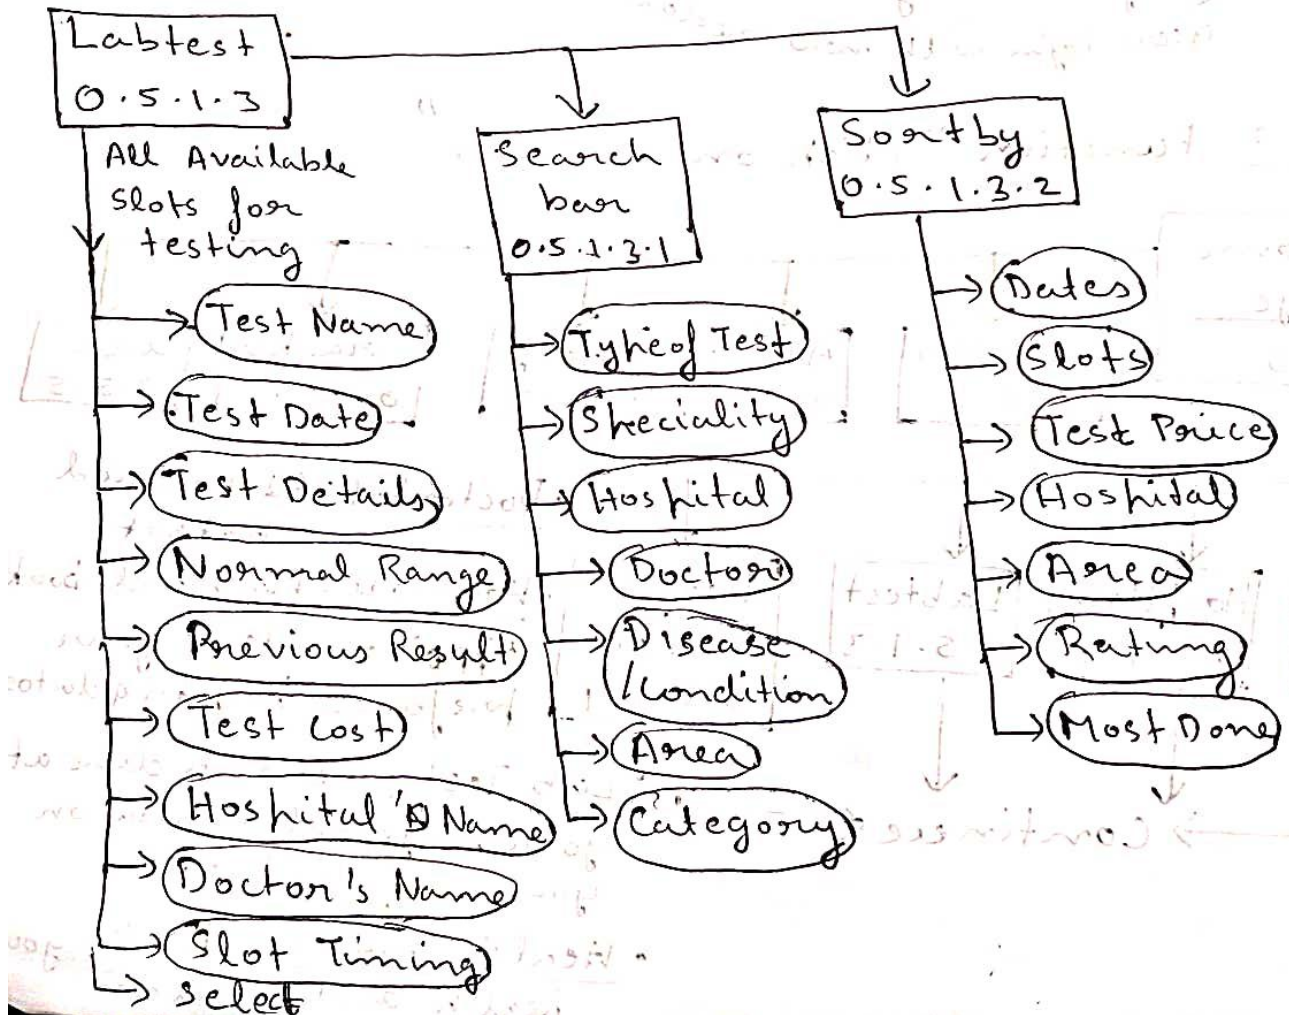 Labtest
0.5.1.3
All Available
slots for
testing
Test Name
Test Date
Test Details
Normal Range
Previous Result
Test Cost
Hospital's Name
Doctor's Name
Slot Timing
select
Search
bar
0.5.1.3.1
Type of Test
Speciality
Hospital
Doctor
Disease
/Condition
Area
Category
Sortby
0.5.1.3.2
Dates
Slots
Test Price
Hospital
Area
Rating
Most Done